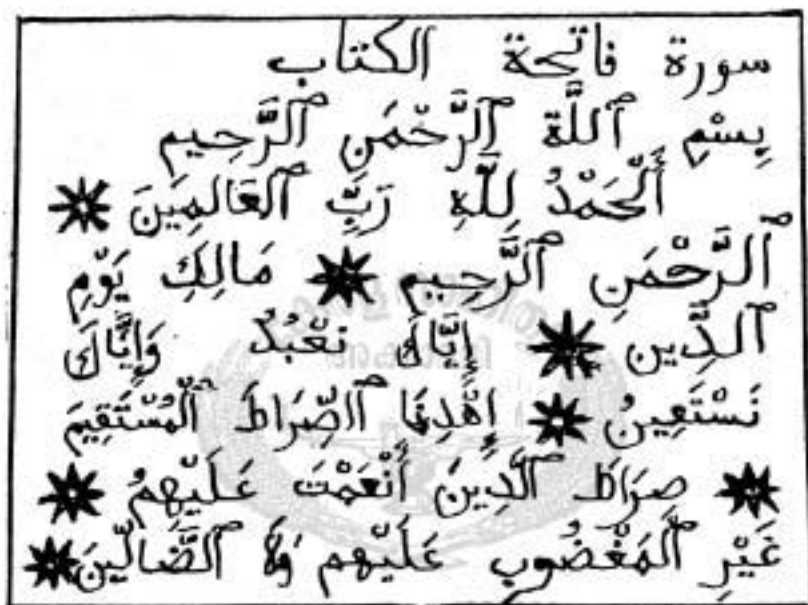 سورة فاتحة الكتاب
بِسْمِ ٱللَّهِ ٱلرَّحْمَنِ ٱلرَّحِيمِ
أَلْحَمْدُ لِلَّهِ رَبِّ ٱلعَالَمِينَ
ٱلرَّحْمَنِ ٱلرَّحِيمِ مَالِكِ يَوْمِ
ٱلدِّينِ إِيَّاكَ نَعْبُدُ وَإِيَّاكَ
نَسْتَعِينُ إِهْدِنَا ٱلصِّرَاطَ ٱلْمُسْتَقِيمَ
صِرَاطَ ٱلَّذِينَ أَنْعَمْتَ عَلَيْهِمْ
غَيْرِ ٱلْمَغْضُوبِ عَلَيْهِم وَلَا ٱلضَّالِّينَ